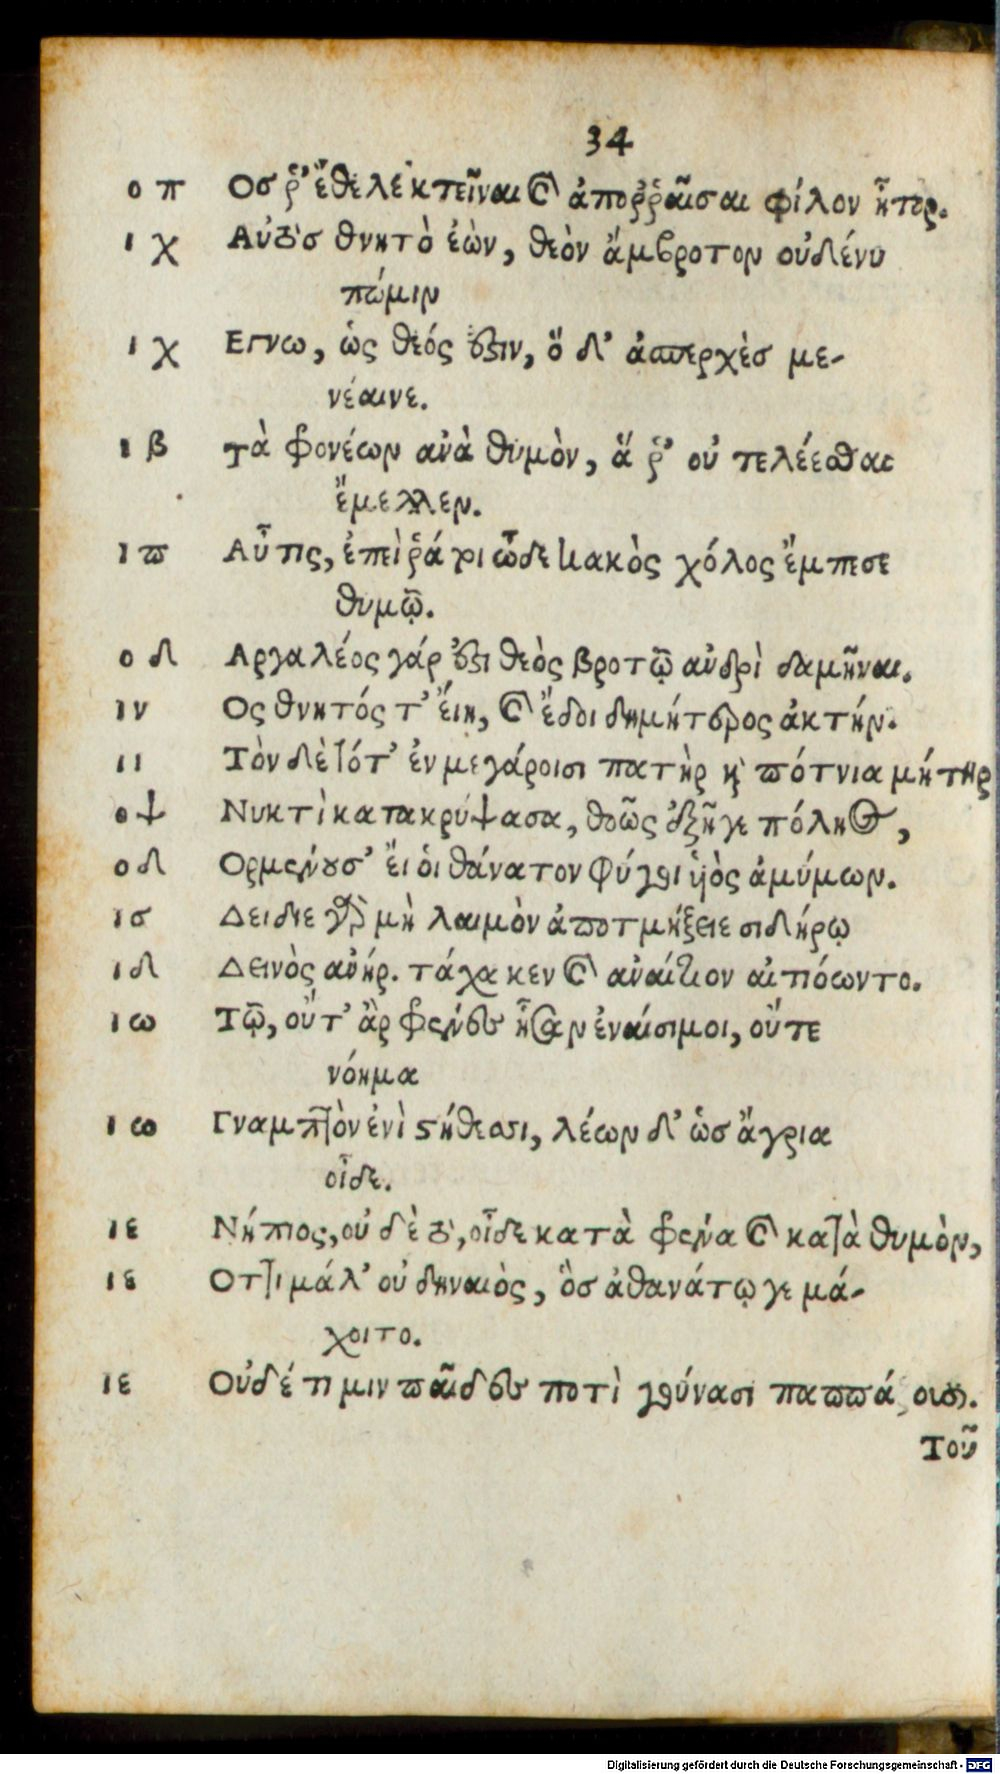 34
ο π Οσ ῥ’ ἔθελε κτεῖναι καὶ ἀποῤῥαῖσαι φίλον ἦτορ.
ι χ Αὐτὸσ θνητὸ ἐὼν, θεὸν ἄμβροτον οὐδένυ
πώμιν
ι χ Εγνω, ὡς θεός ἐστιν, ὅ δ’ ἀσπερχὲσ με-
νέαινε.
ι β Τὰ φρονέων ἀνὰ θυμὸν, ἅ ῥ’ οὐ τελέεσθαι
ἔμελλεν.
ι π Αὖτις, ἐπεὶ ῥά χι ὧδε κακὸς χόλος ἔμπεσε
θυμῷ.
ο δ Αργαλέος γάρ ἐστι θεὸς βροτῷ ἀνδρὶ δαμῆναι.
ι ν Ος θνητός τ’ ἔιη, καὶ ἔδοι δημήτερος ἀκτήν.
ι ι Τὸν δὲ τότ’ ἐν μεγάροισι πατὴρ καὶ πότνια μήτηρ
ο ψ Νυκτὶ κατακρύψασα, θοῶς ἐξῆγε πόληος,
ο δ Ορμενουσ’ ἔι οἱ θάνατον φύγοι ὑιὸς ἀμύμων.
ι σ Δειδιε γὰρ μὴ λαιμὸν ἀποτμήξειε σιδήρῳ
ι δ Δεινὸς ἀνήρ. τάχα κεν καὶ ἀναίτιον αἰτιόωντο.
ι ω Τῷ, οὔτ’ ἂρ φρένες ἦσαν ἐναίσιμοι, οὔτε
νόημα
ι ω Γναμπτὸν ἐνὶ στήθεσσι, λέων δ’ ὡσ ἄγρια
οἶδε.
ι ε Νήπιος, οὐ δὲ τὸ, οἶδε κατὰ φρένα καὶ κατὰ θυμὸν,
ι ε Οττι μάλ’ οὐ δηναιὸς, ὃσ ἀθανάτῳ γε μά-
χοιτο.
ι ε Οὐδέ τι μιν παῖδες ποτὶ γούνασι παππά ουσι.
Τοῦ
Digitalisierung gefördert durch die Deutsche Forschungsgemeinschaft - DFG